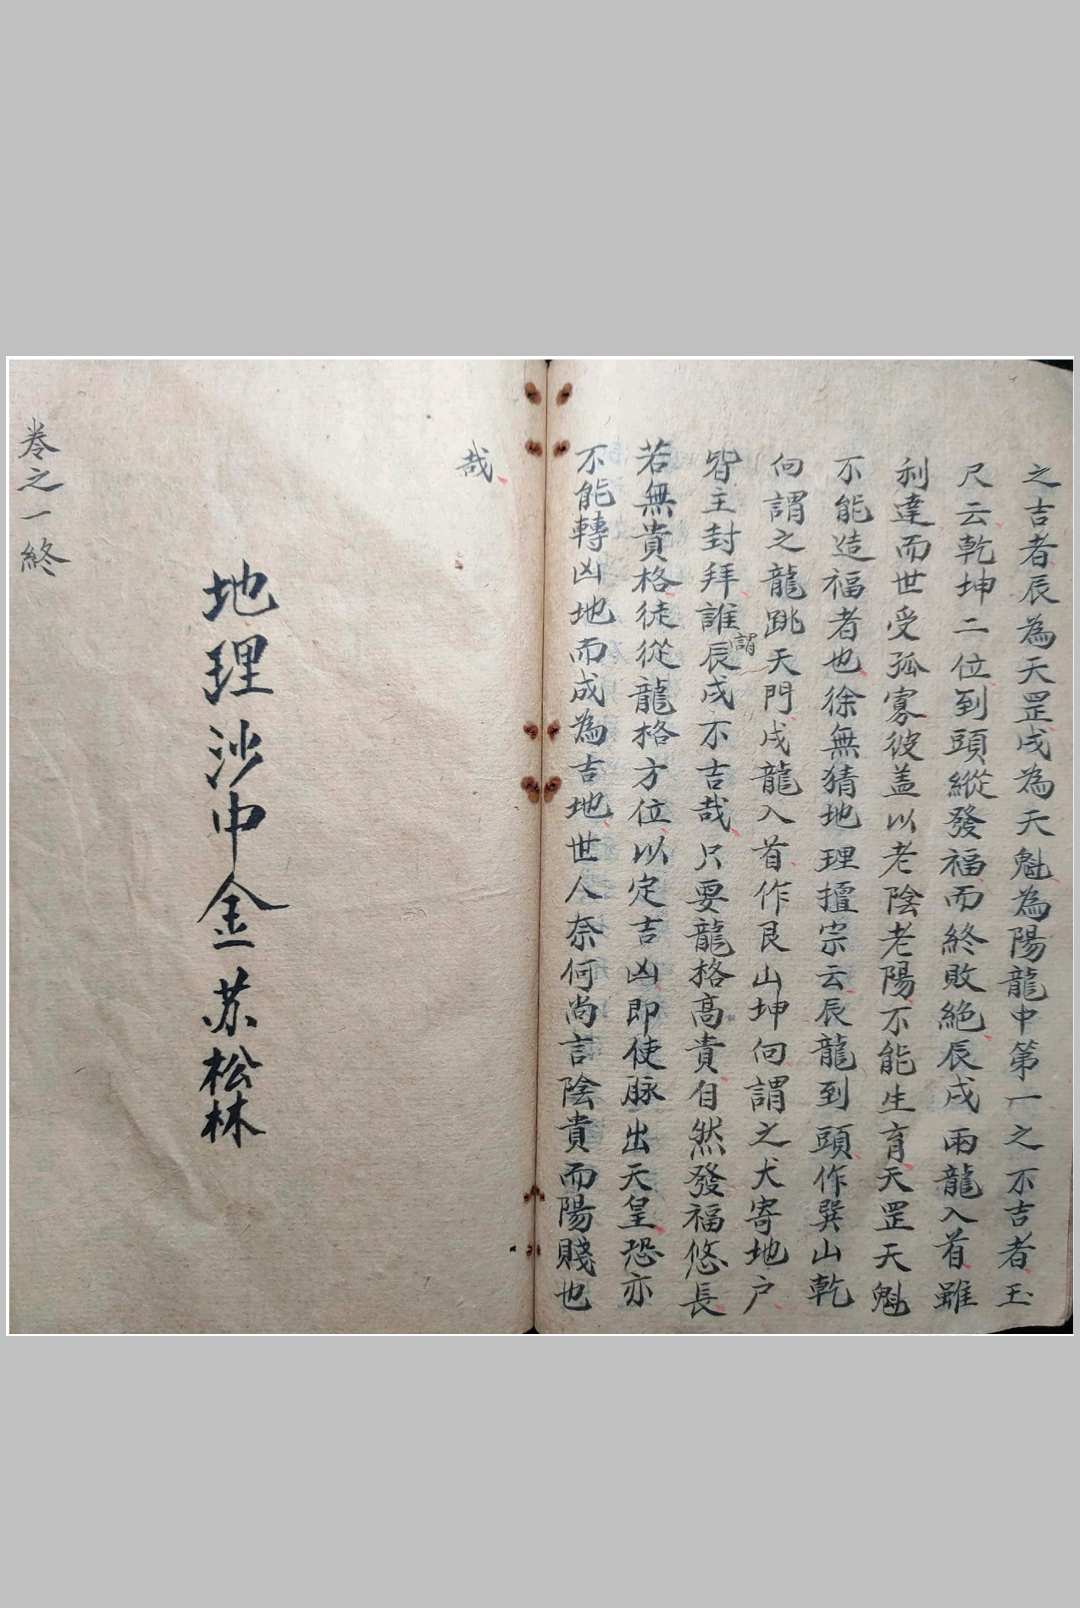 之吉者辰為天罡戌為天魁為陽龍中第一之不吉者玉
尺云乾坤二位到頭縱發福而終敗絕辰戌兩龍入首雖
利達而世受孤寡彼盖以老陰老陽不能生育天罡天魁
不能造福者也徐無猜地理擅宗云辰龍到頭作巽山乾
向謂之龍跳天門戌龍入首作艮山坤向謂之犬寄地户
皆主封拜誰謂辰戌不吉哉只要龍格高貴自然發福悠長
若無貴格徒從龍格方位以定吉凶即使脉出天皇恐亦
不能轉凶地而成為吉地世人奈何尚言陰貴而陽賤也
哉
地理沙中金苏松林
卷之一終